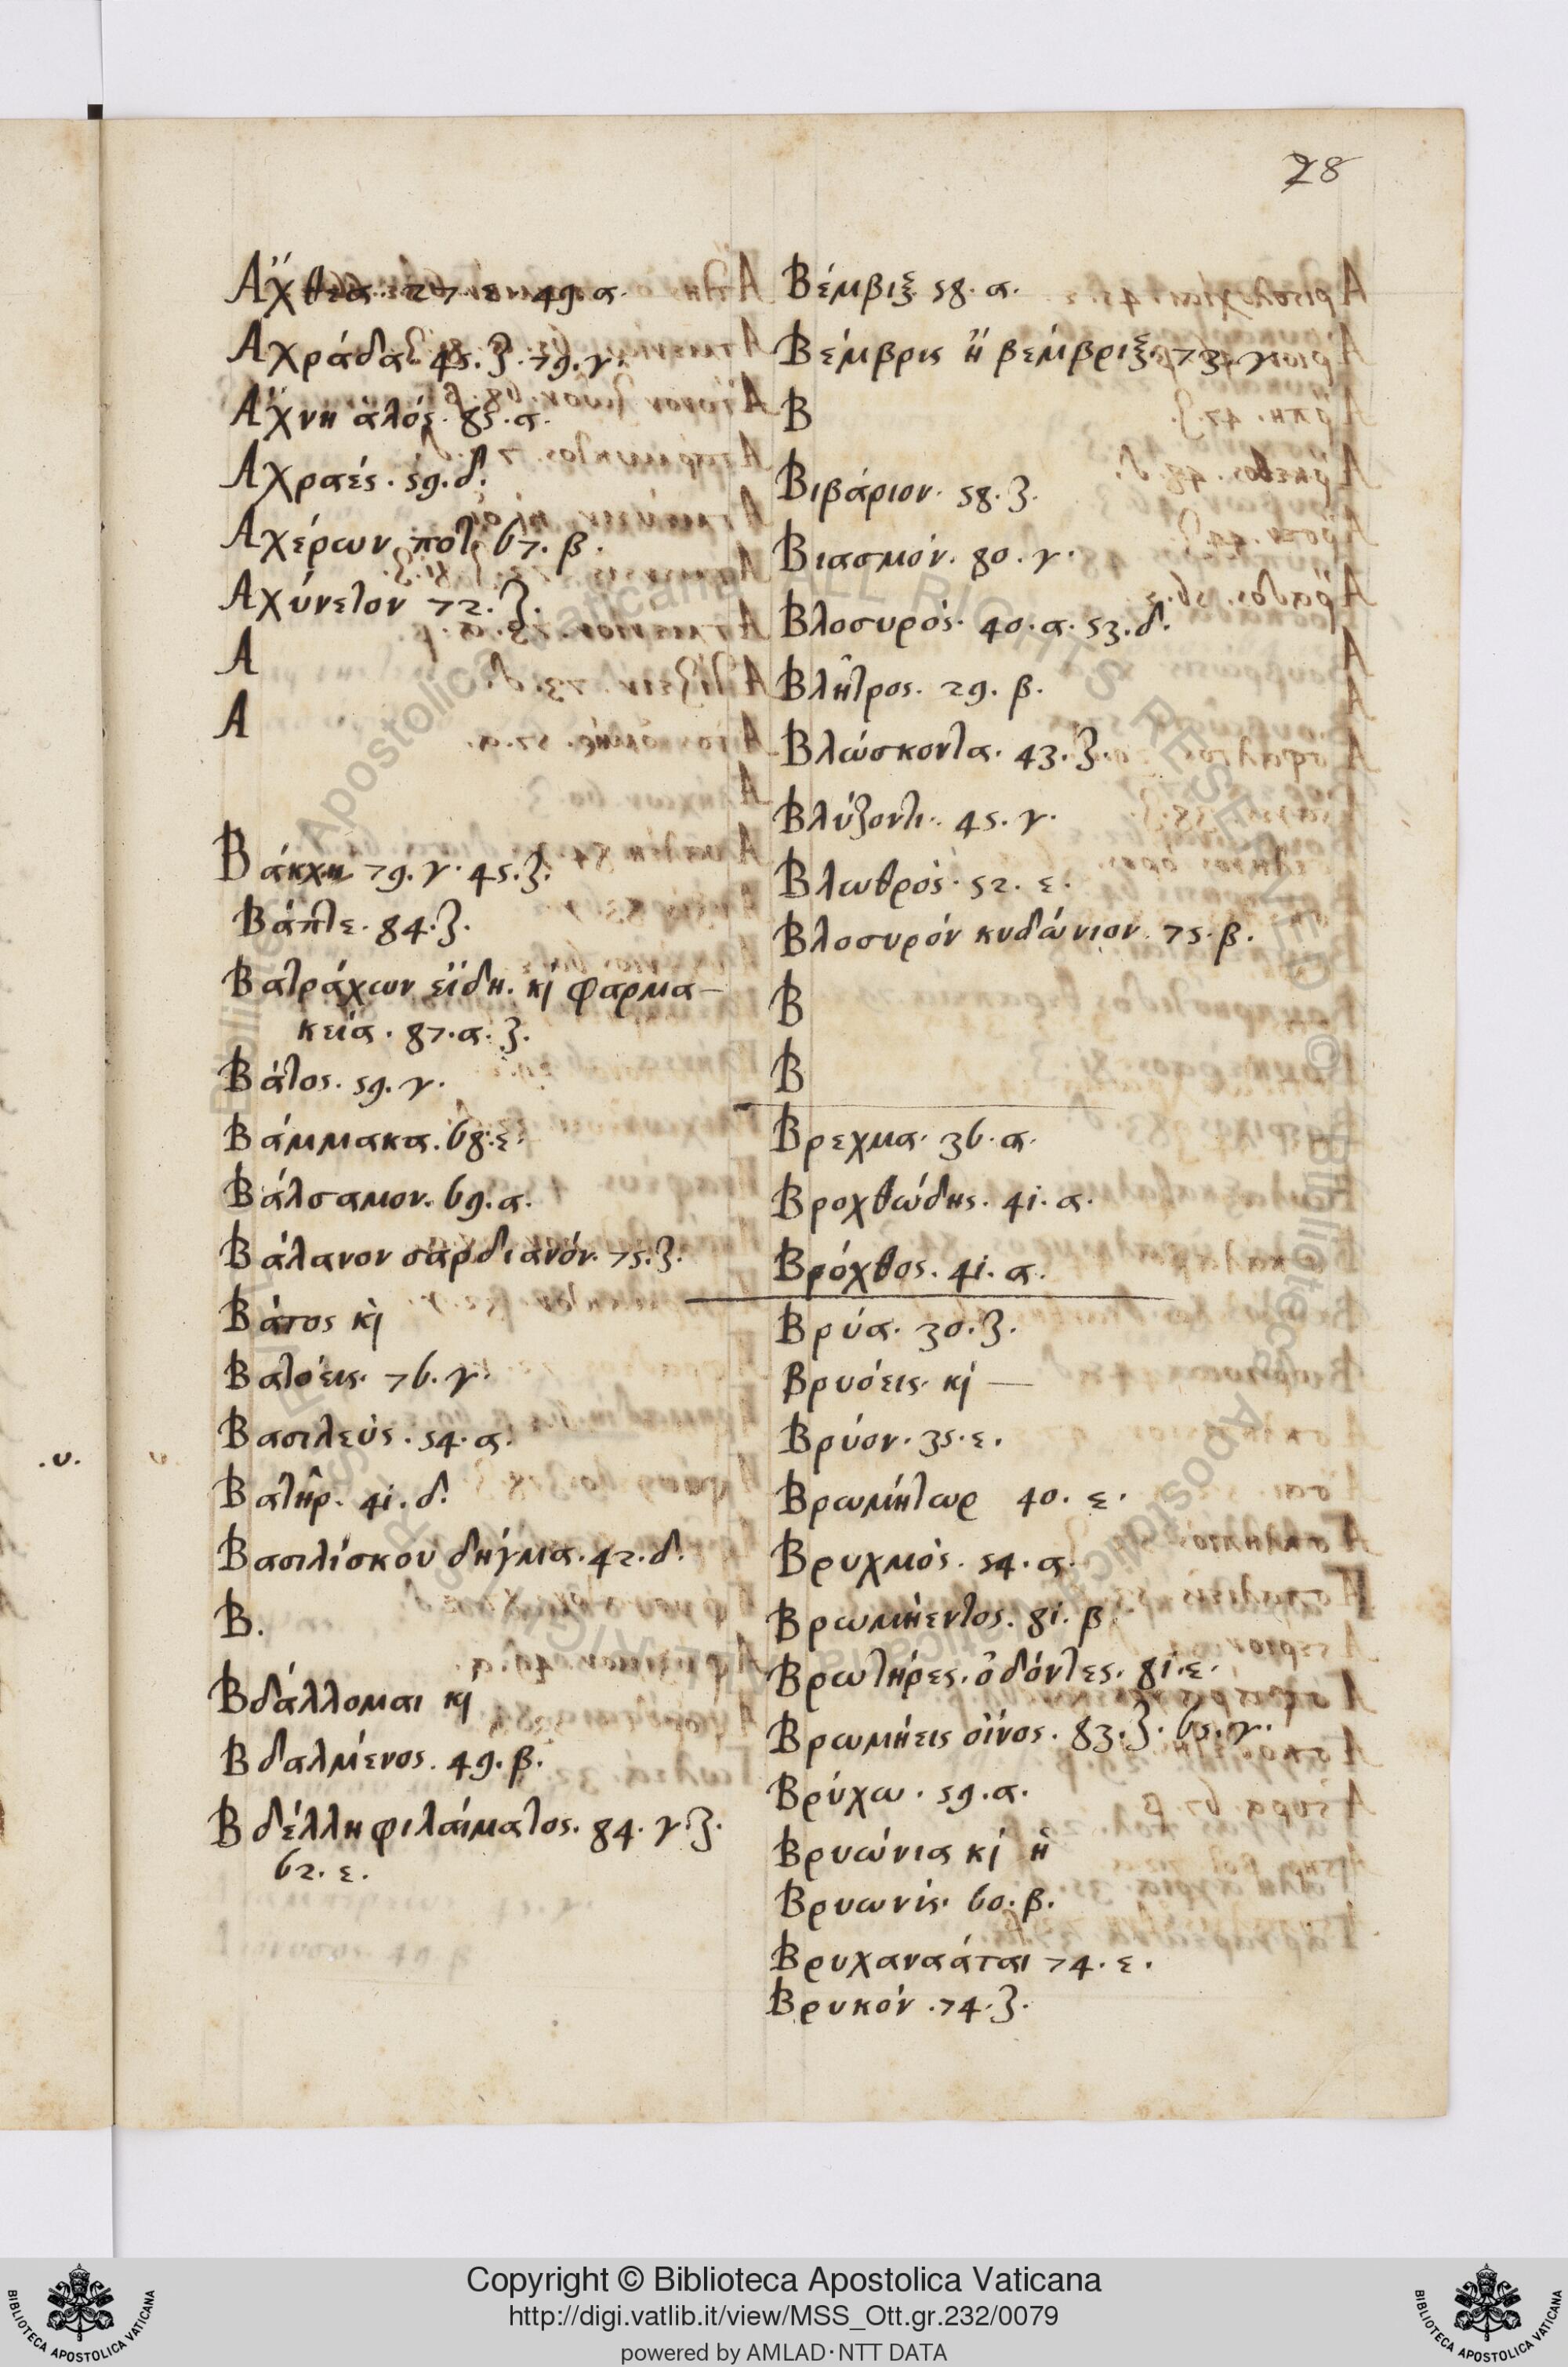 28
Ἄχθεα. 27. ε. 49. α.
Ἀχράδα. 45. ζ. 79. γ.
Ἄχνη ἁλός. 85. α.
Ἀχραές. 59. δ.
Ἀχέρων ποτ. 67. β.
Ἀχύνετον 72. ζ.
Α
Α
Βάκχη 79. γ. 45. ζ.
Βάπτε. 84. ζ.
Βατράχων εἴδη. κὶ φαρμα–
κεία. 87. α. ζ.
Βάτος. 59. γ.
Βάμμακα. 68. ε.
Βάλσαμον. 69. α.
Βάλανον σαρδιανόν. 75. ζ.
Βάτος κὶ
Βατόεις. 76. γ.
Βασιλεύς. 54. α.
Βατῆρ. 41. δ.
Βασιλίσκου δῆγμα. 42. δ.
Β.
Βδάλλομαι κὶ
Βδαλμένος. 49. β.
Βδέλλη φιλαίματος. 84. γ. ζ.
62. ε.
Βέμβιξ 58. α.
Βέμβρις ἢ βέμβριξ. 73. γ.
Β
Βιβάριον. 58. ζ.
Βιασμόν. 80. γ.
Βλοσυρός. 40. α. 53. δ.
Βλῆτρος. 29. β.
Βλώσκοντα. 43. ζ.
Βλύζοντι. 45. γ.
Βλωθρός. 52. ε.
Βλοσυρόν κυδώνιον. 75. β.
Β
Β
Βρεχμα. 36. α.
Βροχθώδης. 41. α.
Βρόχθος. 41. α.
Βρύα. 30. ζ.
Βρυόεις. κὶ —
Βρύον. 35. ε.
Βρωμήτωρ 40. ε.
Βρυχμός. 54. α.
Βρωμήεντος. 81. β
Βρωτῆρες. ὀδόντες. 81. ε.
Βρωμήεις οἶνος. 83. ζ. 65. γ.
Βρύχω. 59. α.
Βρυώνια κὶ ἡ
Βρυωνίς. 60. β.
Βρυχαναάται 74. ε.
Βρυκόν. 74. ζ.
.υ.
Copyright © Biblioteca Apostolica Vaticana
http://digi.vatlib.it/view/MSS_Ott.gr.232/0079
powered by AMLAD·NTT DATA
BIBLIOTECA APOSTOLICA VATICANA
BIBLIOTECA APOSTOLICA VATICANA